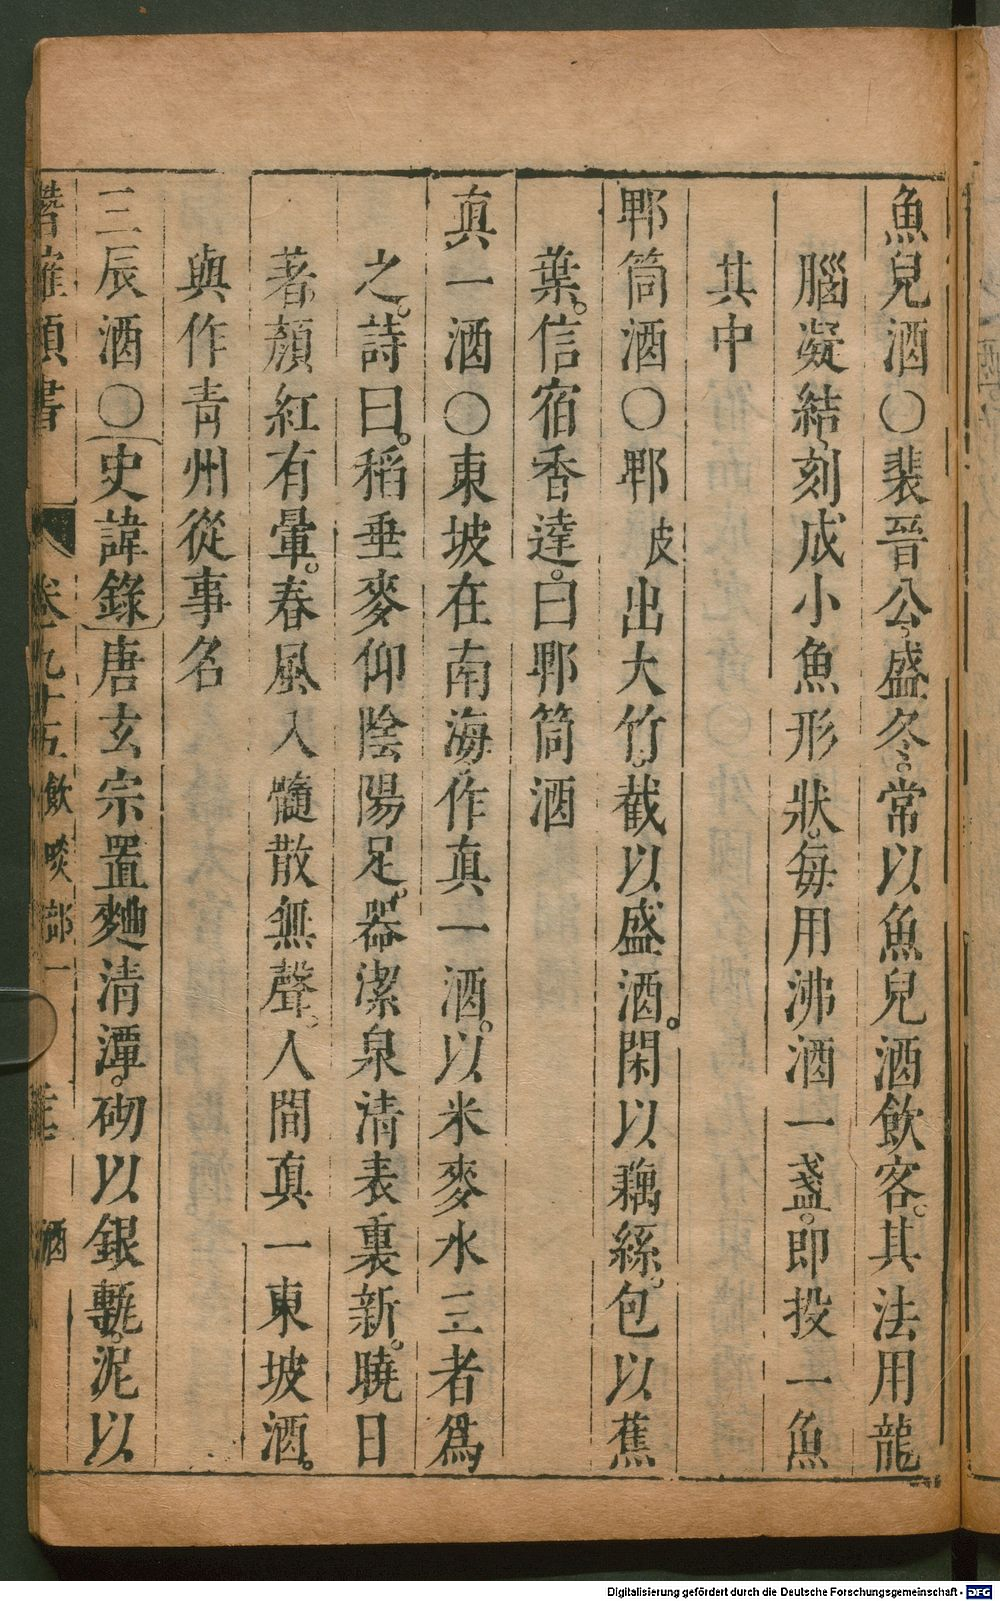 魚兒酒○裴晉公盛冬常以魚兒酒飲客。其法用龍
腦凝結刻成小魚形狀。每用沸酒一盞。即投一魚
其中
郫筒酒○郫皮出大竹。截以盛酒。閑以藕絲。包以蕉
葉。信宿香達。曰郫筒酒
真一酒○東坡在南海作真一酒。以米麥水三者爲
之。詩曰。稻垂麥仰陰陽足。器潔泉清表裏新。曉日
著顏紅有暈。春風入髓散無聲。人間真一東坡酒。
與作青州從事名
三辰酒○史諱錄唐玄宗置麯清潭。砌以銀甎。泥以
潛確類書 卷九十五 飲啖部一 酒
Digitalisierung gefördert durch die Deutsche Forschungsgemeinschaft - DFG